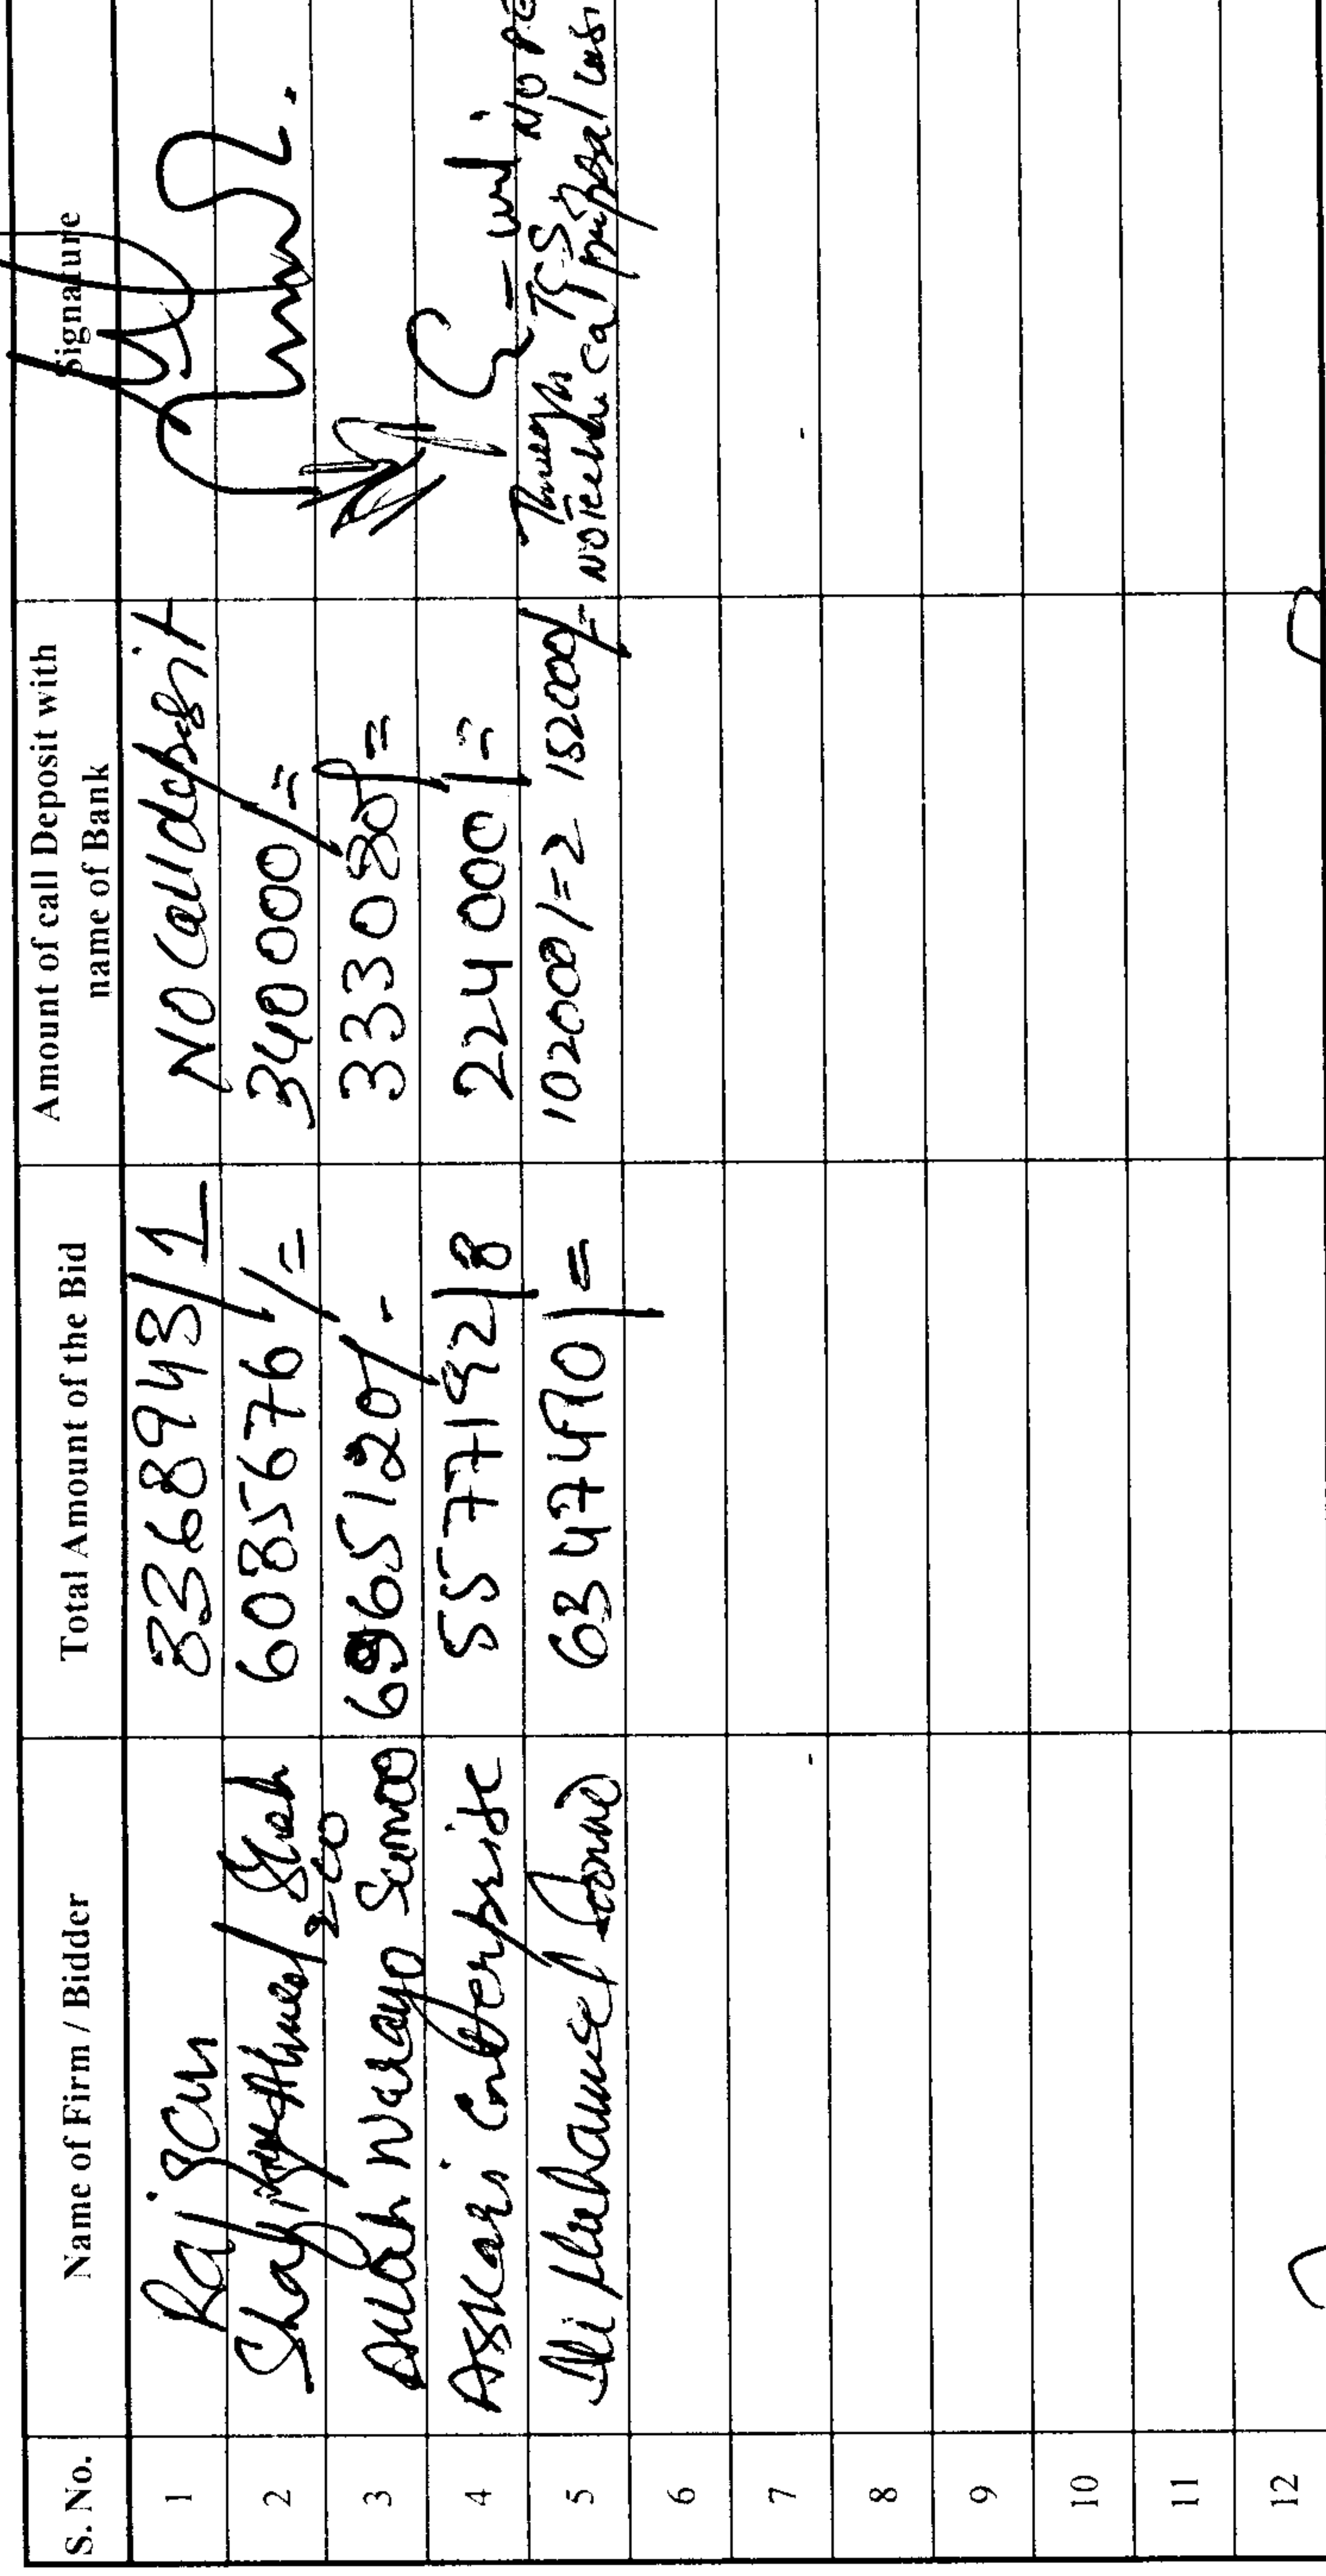 S. No. Name of Firm / Bidder Total Amount of the Bid Amount of call Deposit with name of Bank Signature
1 3368943/1 NO Call deposit
2 6085676/= 340000/=
3 Allah Warayo Soomro 6965120/- 333080/=
4 Askari Enterprise 5577192/8 224000/=
5 Ali Muhammad 6347490/= 102000/= 2 152000/= Through TCS NO
6
7
8
9
10
11
12